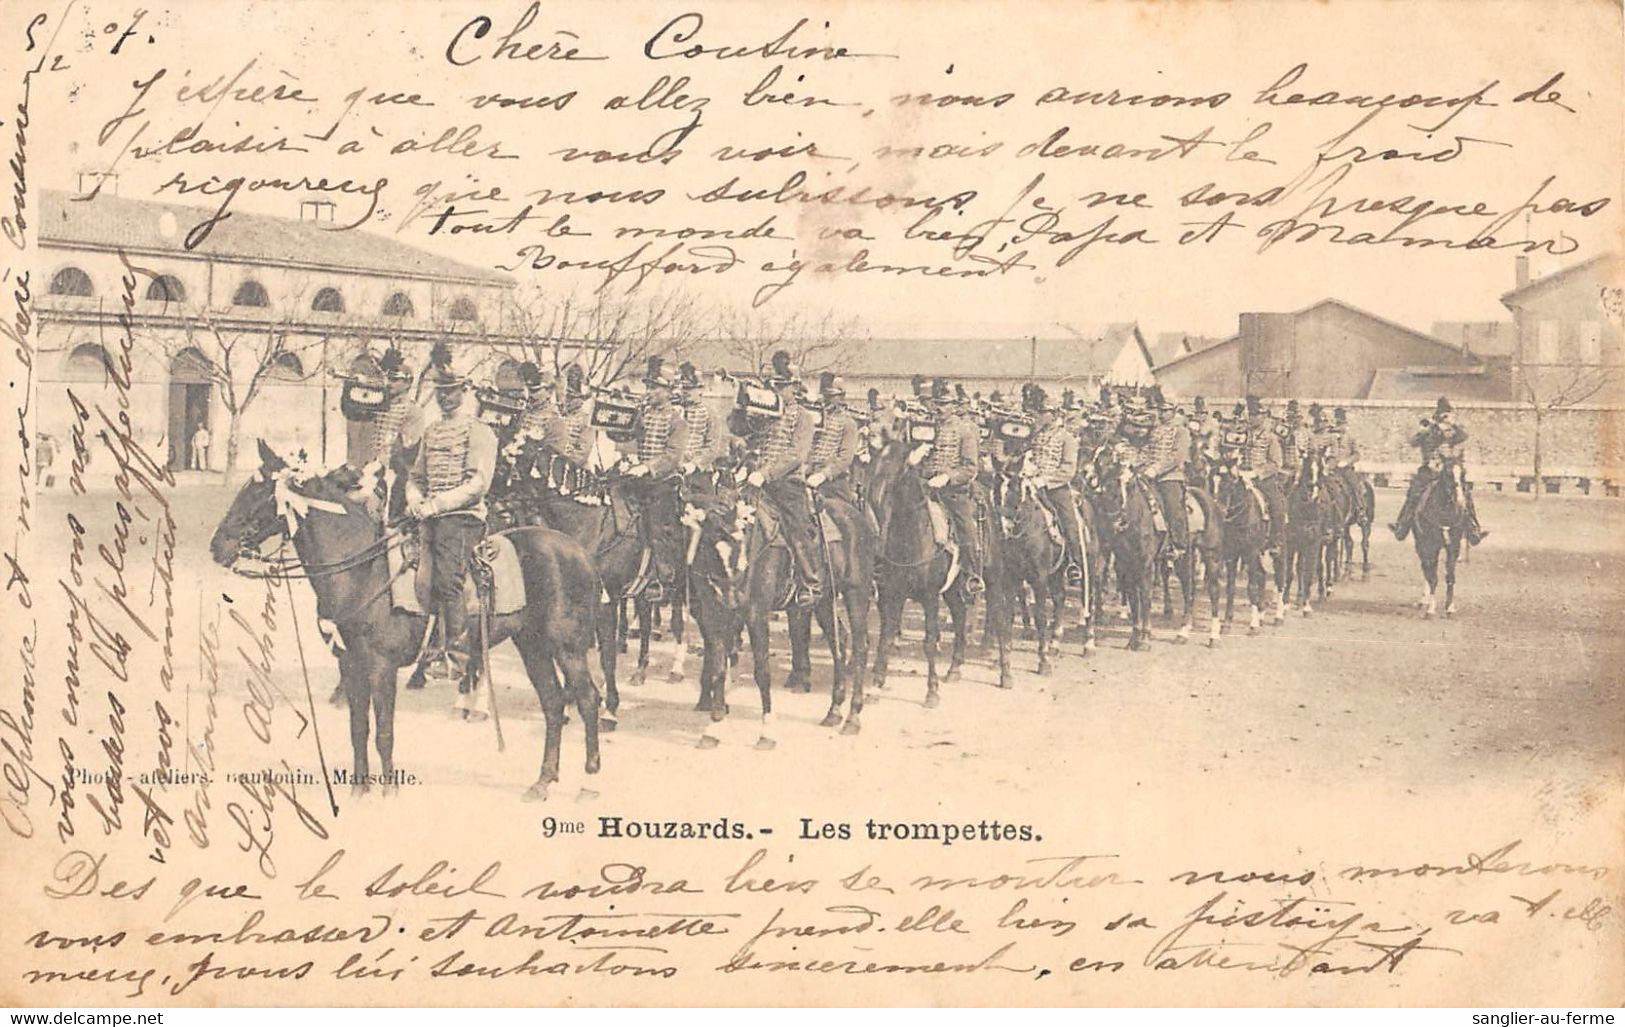 5/2 07.
Chère Cousine
J'espère que vous allez bien, nous aurions beaucoup de
plaisir à aller vous voir, mais devant le froid
rigoureux que nous subissons je ne sors presque pas
tout le monde va bien, Papa et Maman
Bouffard également.
Photo-ateliers. Baudouin. Marseille.
9me Houzards.- Les trompettes.
Des que le soleil voudra bien se montrer nous monterons
vous embrasser. et Antoinette prend-elle bien sa
va t-elle
mieux, nous lui souhaitons sincèrement, en attendant
Alphonse et moi chère Cousine
vous envoyons nos
baisers les plus affectueux
et nos amitiés à
Antoinette
Lily Alphonse
sanglier-au-ferme